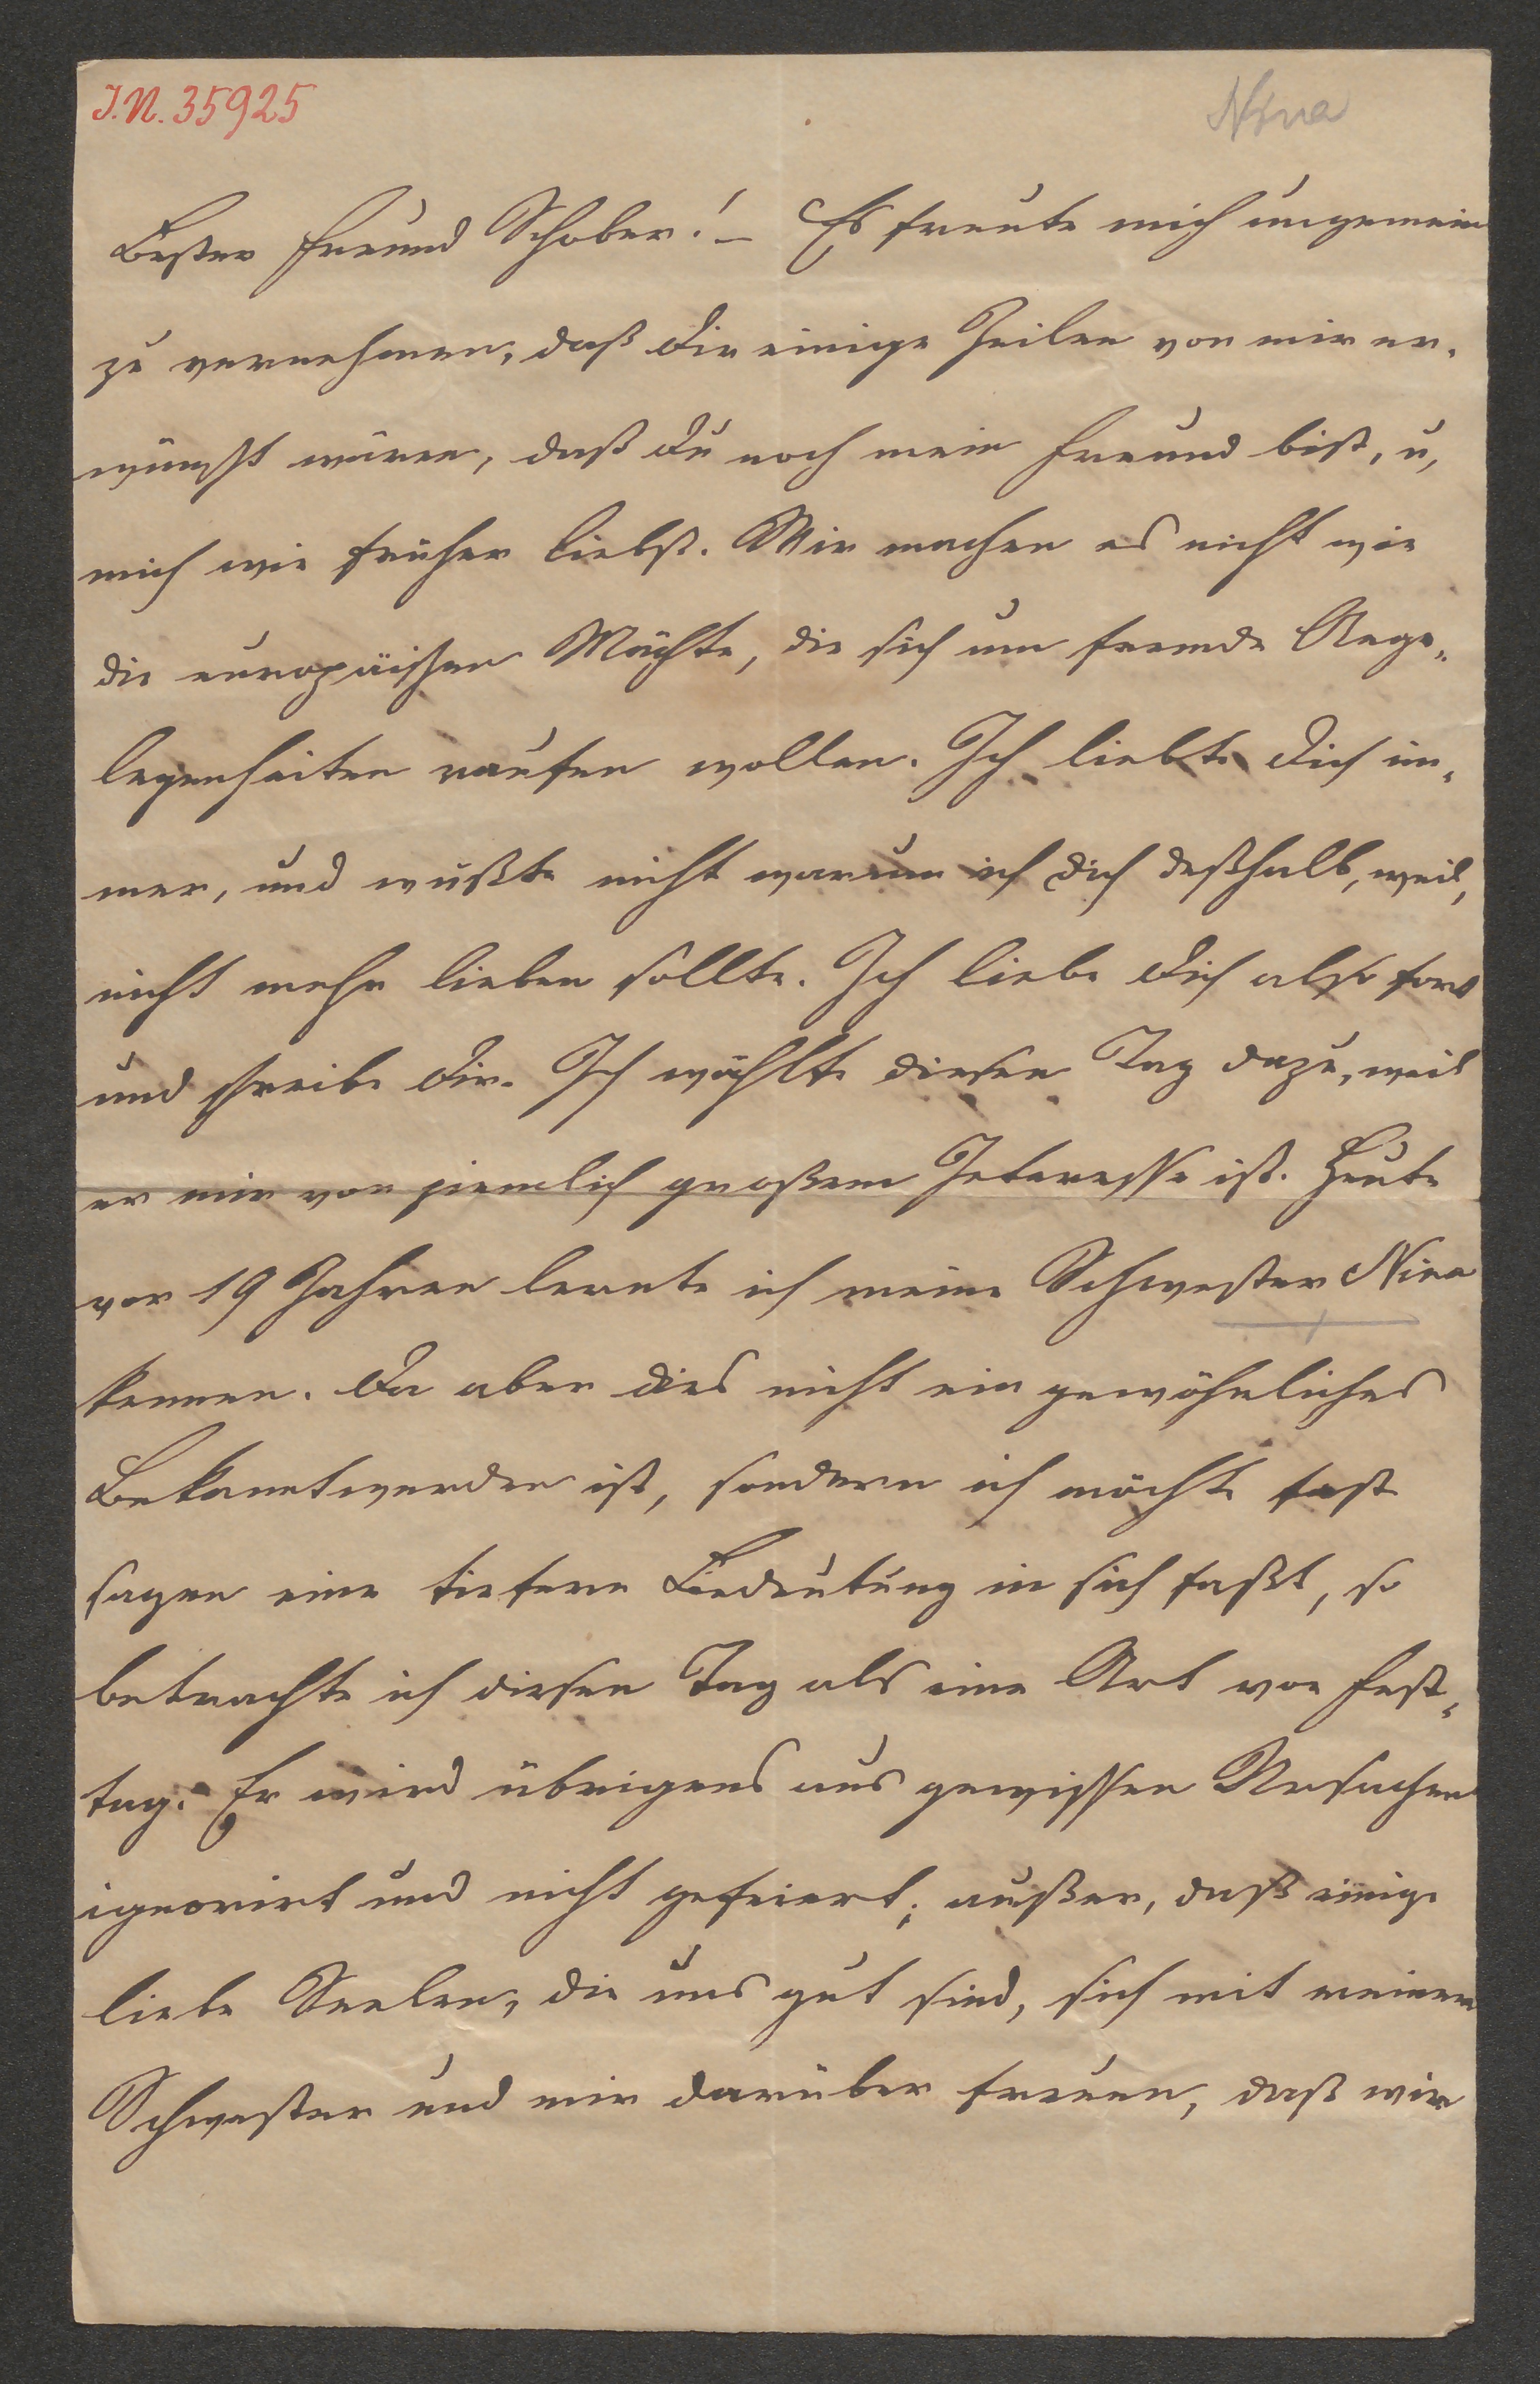 J.N. 35925
Nina
Bester Freund Schober! – Es freute mich ungemein
zu vernehmen, daß Dir einige Zeilen von mir er-
wünscht wären, daß Du noch mein Freund bist, u,
mich wie früher liebst. Wir machen es nicht wie
die europäischen Mächte, die sich um fremde Ange-
legenheiten raufen wollen. Ich liebte Dich im-
mer, und wüßte nicht warum ich Dich deßhalb, weil,
nicht mehr lieben sollte. Ich liebe Dich also fort
und schreibe Dir. Ich wählte diesen Tag dazu, weil
er mir von ziemlich großem Interesse ist. Heute
vor 19 Jahren lernte ich meine Schwester Nina
kennen. Da aber dies nicht ein gewöhnliches
Bekanntwerden ist, sondern ich möchte fast
sagen eine tiefere Bedeutung in sich faßt, so
betrachte ich diesen Tag als eine Art von Fest-
tag. Er wird übrigens aus gewissen Ursachen
ignorirt und nicht gefeiert; außer, daß einige
liebe Seelen, die uns gut sind, sich mit meiner
Schwester und mir darüber freuen, daß wir